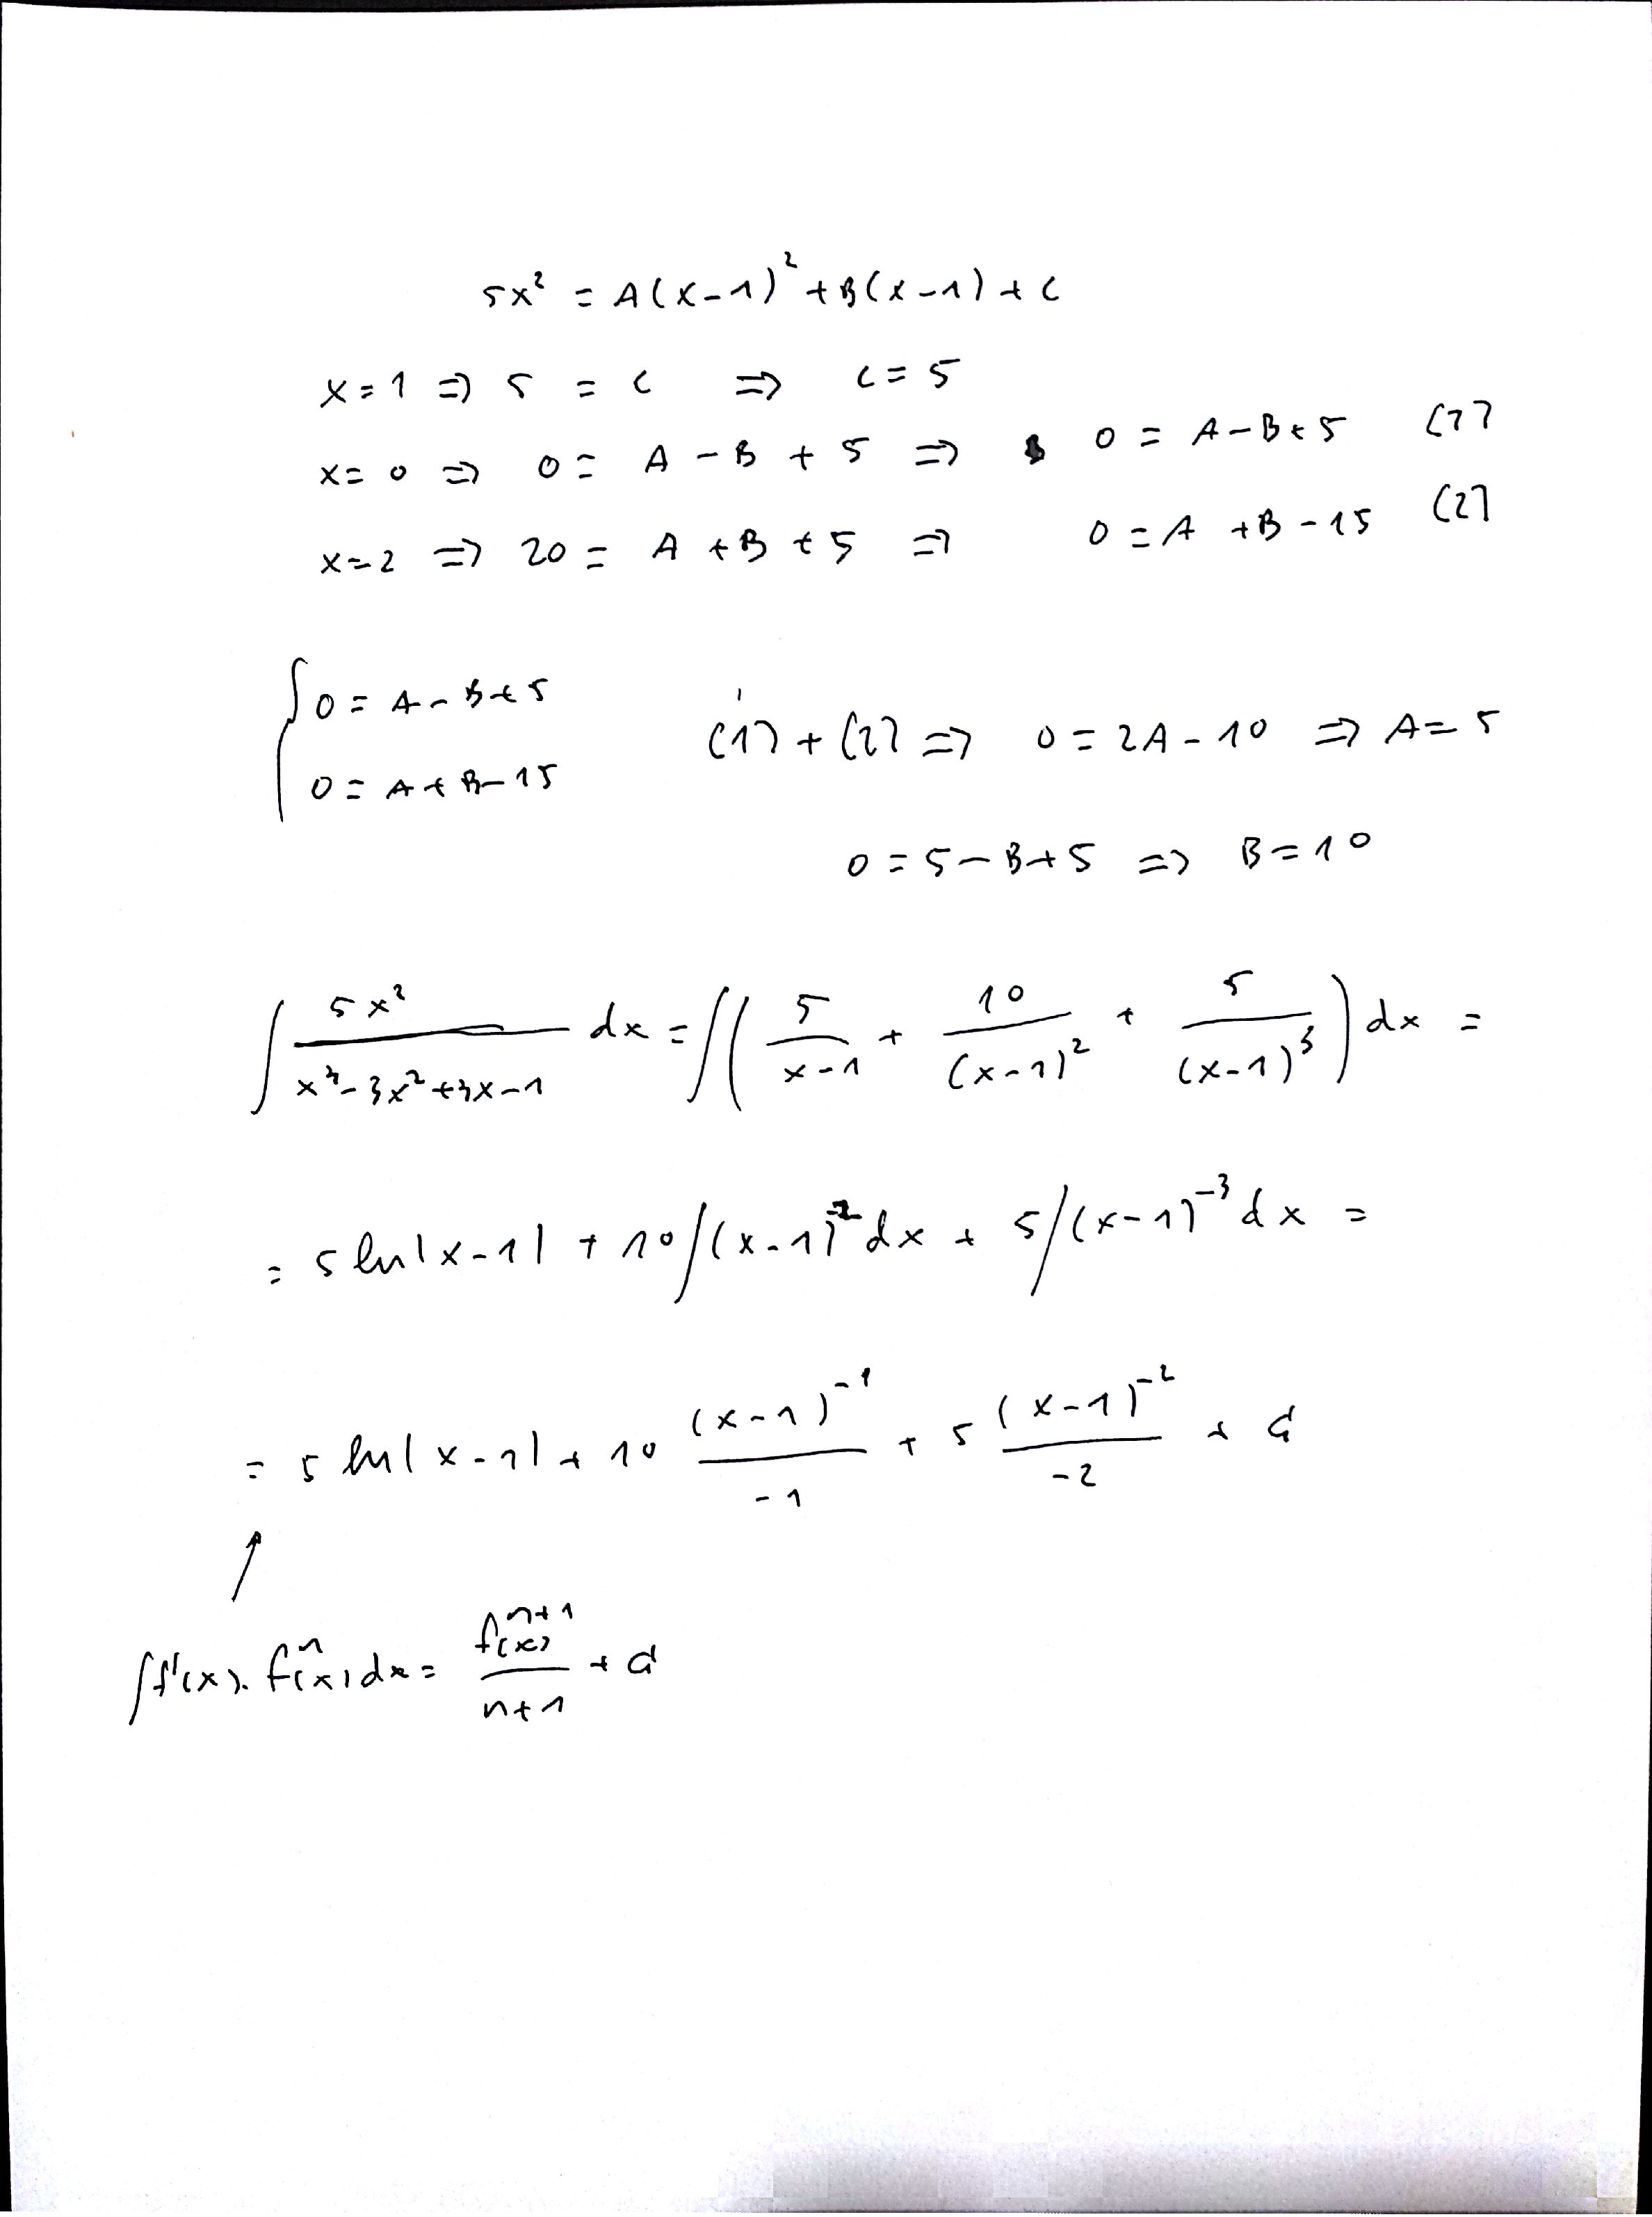 5x² = A(x-1)² + B(x-1) + C
x=1 => 5 = C => C=5
x=0 => 0 = A - B + 5 => 0 = A-B+5 (1)
x=2 => 20 = A + B + 5 => 0 = A + B - 15 (2)
{ 0 = A - B + 5
(1) + (2) => 0 = 2A - 10 => A = 5
0 = A + B - 15
0 = 5 - B + 5 => B = 10
∫ 5x² / (x³-3x²+3x-1) dx = ∫( 5/(x-1) + 10/(x-1)² + 5/(x-1)³ ) dx =
= 5 ln|x-1| + 10∫(x-1)⁻² dx + 5∫(x-1)⁻³ dx =
= 5 ln|x-1| + 10 (x-1)⁻¹/-1 + 5 (x-1)⁻²/-2 + C
↑
∫f'(x)·fⁿ(x)dx = fⁿ⁺¹(x)/(n+1) + C